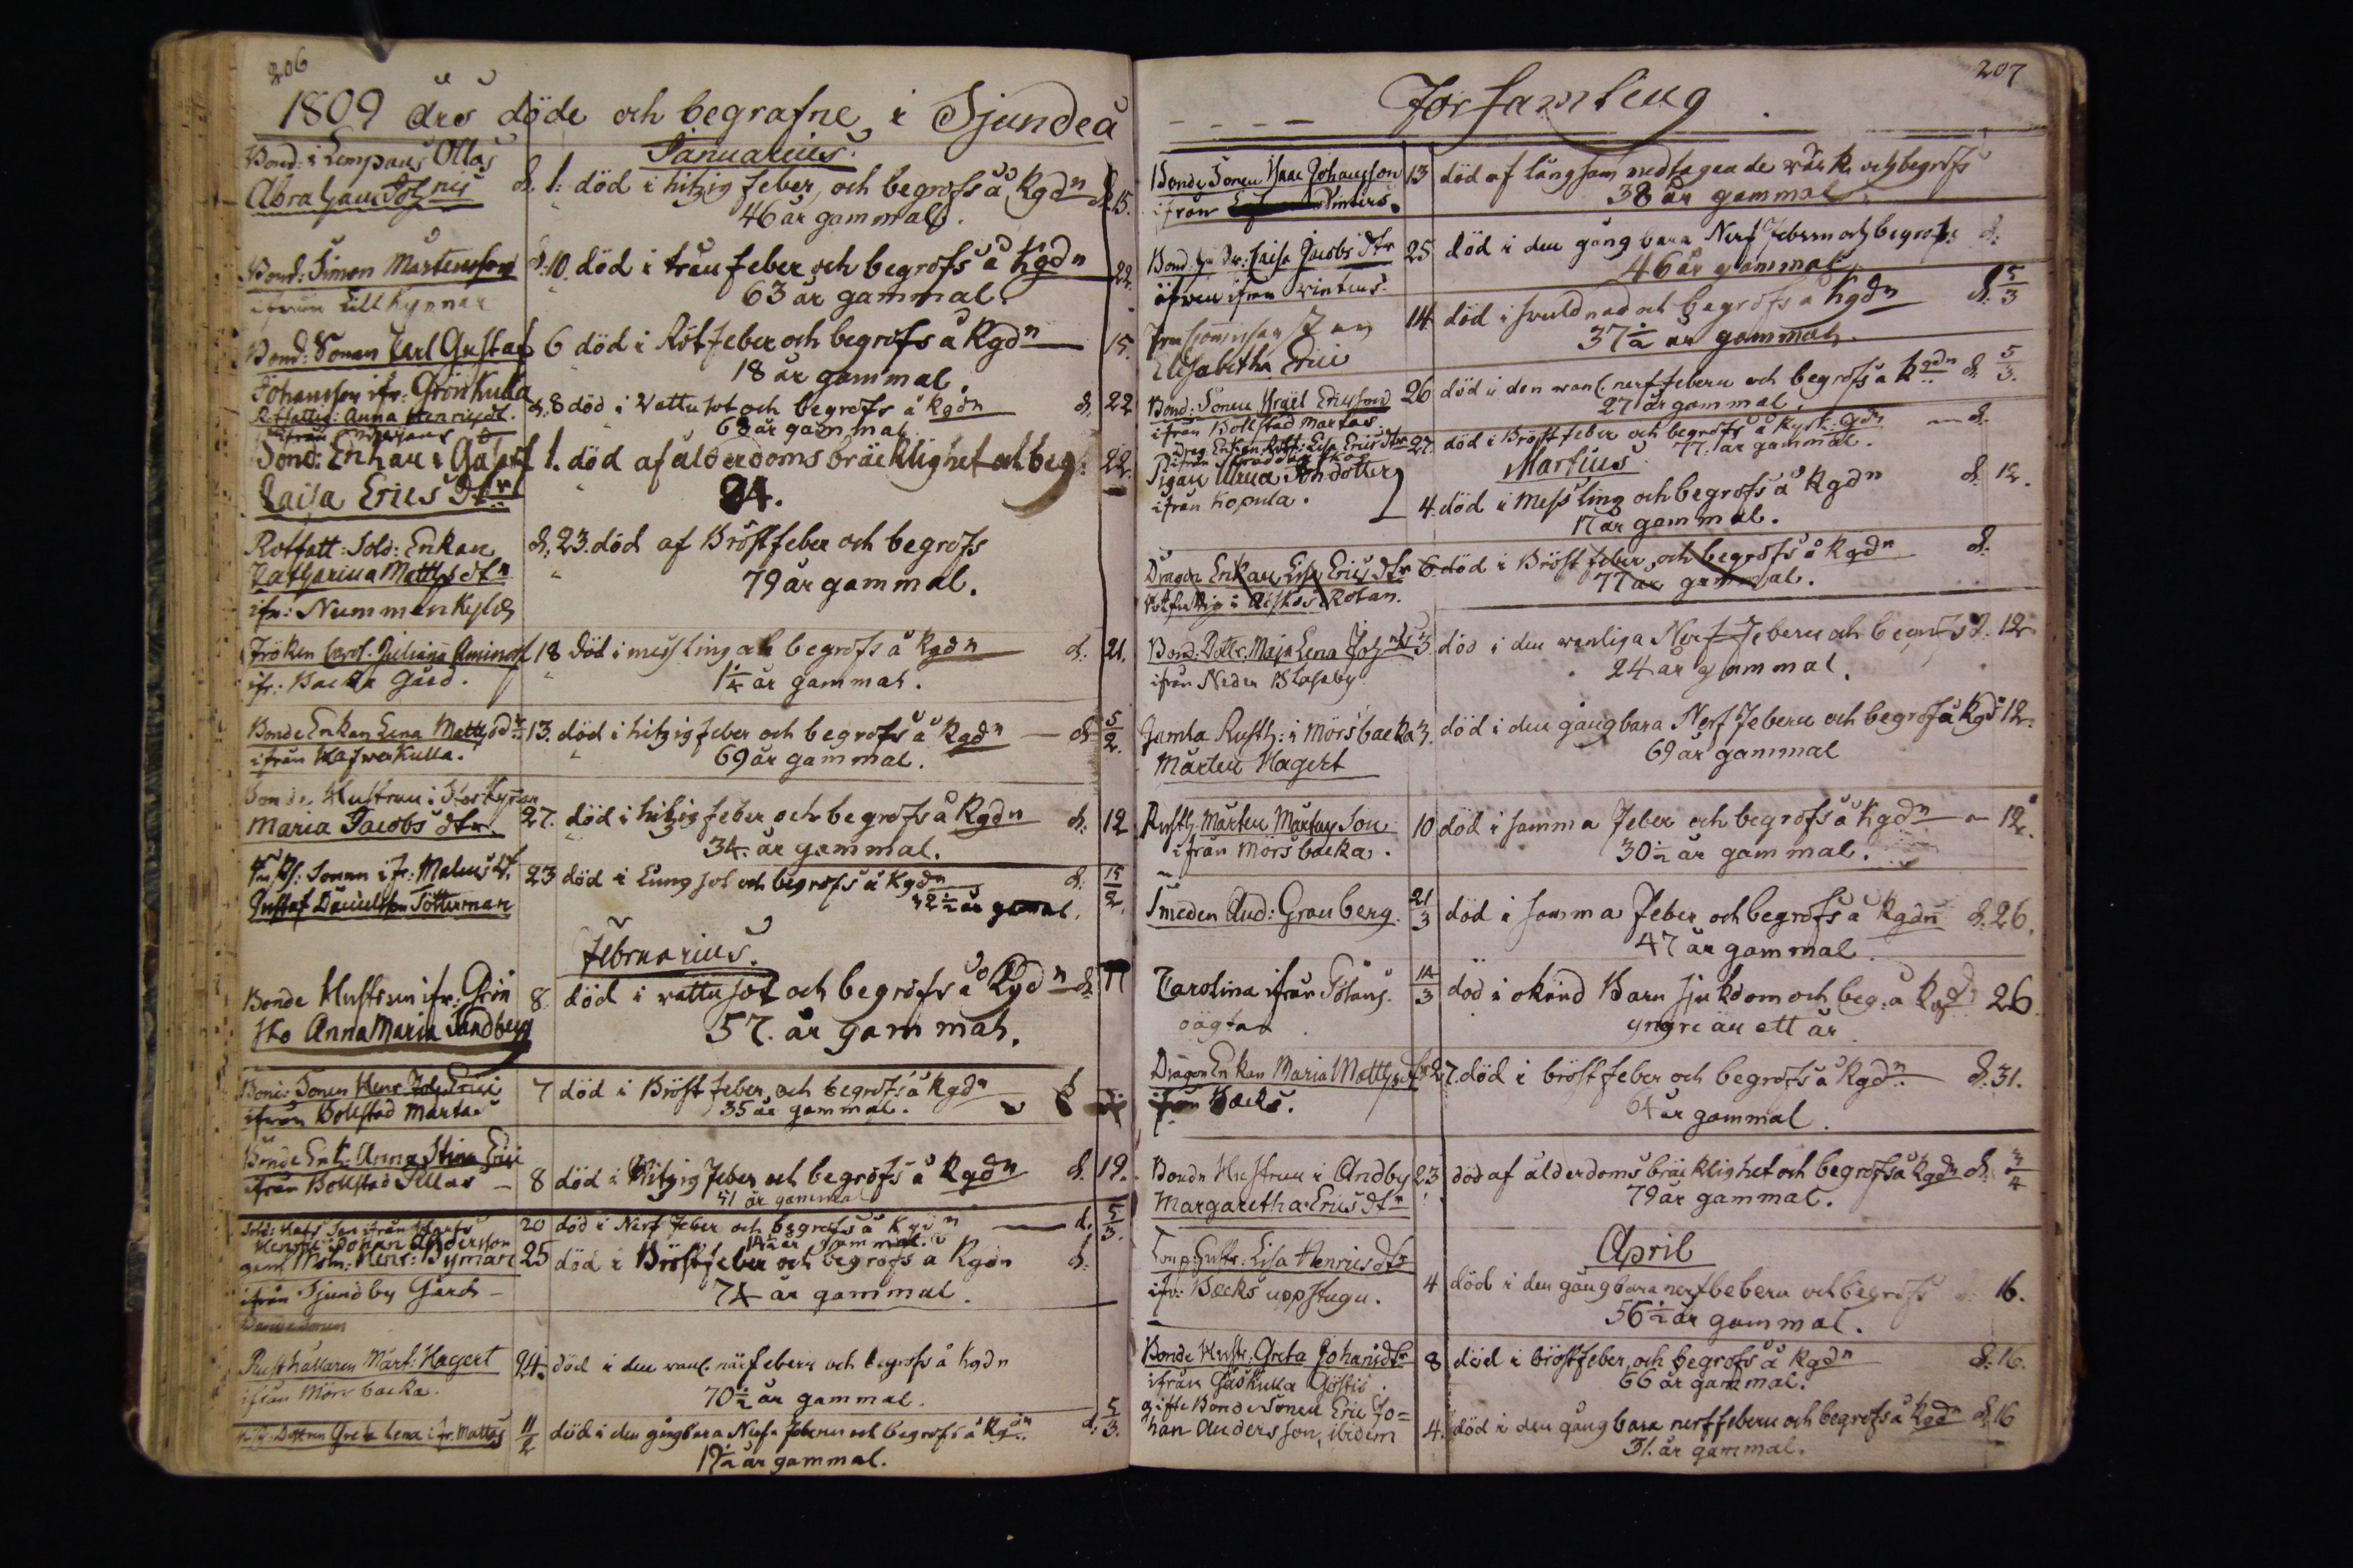 206
1809 års döde och begrafne i Sjundeå
Januarius.
Bond: i Lempans Ollas
Abraham Joh:nis d. 1. död i hitzig feber, och begrofs å Kgdn d. 15.
46 år gammal.
Bond: Simon Mårtensson d. 10. död i feber och begrofs å Kgdn 22.
ifrån Lill Kynnar 63 år gammal.
Bond: Sonen Carl Gustaf 6 död i Rötfeber och begrofs å Kgdn 15.
Johansson ifr: Grönkulla 18 år gammal.
Rotfattig: Anna Henricsdt. d. 8 död i Vattusot och begrofs å Kgdn d. 22
ifrån 68 år gammal
Enkan i d. 1. död af ålderdoms bräcklighet och beg: 22.
Caisa Erics dtr 84.
Rotfatt: Sold: Enkan d. 23. död af Bröstfeber och begrofs
Catharina Matts dtr 79 år gammal.
ifr: Nummenkylä
Fröken Carol. Juliana Aminoff 18 död i messling och begrofs å Kgdn d. 21.
ifr: Backa Gård. 1 1/4 år gammal.
Bonde Enkan Lena Matts dtr 13. död i hitzig feber och begrofs å Kgdn d. 5/2.
ifrån Hafverkulla. 69 år gammal.
Bonde Hustrun i Stor Kynnar
Maria Jacobs dtr. 27. död i hitzig feber och begrofs å Kgdn d. 12
34. år gammal.
Sonen ifr: Malms 23 död i Lungsot och begrofs å Kgdn d. 15/2.
Gustaf Danielsson Tötterman 1/2 år gamal.
Februarius.
Bonde Hustrun ifr: Grön 8. död i vattusot och begrofs å Kgdn d. 11
sko Anna Maria Sandberg 57. år gammal.
Bond: Sonen Henr. Joh: Erici 7 död i Bröstfeber, och begrofs å Kgdn
ifrån Bollstad Martas 35 år gammal.
Bonde Enk: Anna Stina Erici
ifrån Bollstad Sillas 8 död i Hitzig feber och begrofs å Kgdn d. 19.
51 år gammal
20 död i Nerf feber och begrofs å Kgdn d. 5/3.
Henric Johan Andersson 14 1/2 år gammal.
gam: Henr: Byman 25 död i Bröstfeber och begrofs å Kgdn d.
ifrån Sjundby Gård 74 år gammal.
Rusthållaren Mårt: Hagert 24. död i den vanl. nerffebern och begrofs å Kgdn
ifrån Mörsbacka. 70 1/2 år gammal.
Dottren Greta Lena ifr. Mattas 11/2 död i den gångbara Nerf febern och begrofs å Kgdn d. 5/3.
17 1/2 år gammal.
207
Församling
Bonde Sonen Isaac Johansson 13 död af långsam medtagande värk och begrofs
ifrån Vinters. 38 år gammal.
Bond. Caisa Jacobs dtr 25 död i den gångbara Nerf febern och begrofs d.
äfven ifrån vinters. 46 år gammal
14 död i svullnad och begrofs å Kgdn d. 5/3
Elisabetha Erici 37 1/2 år gammal.
Bond: Sonen Israël Ericsson 26 död i den vanl. nerffebern och begrofs å Kgdn d. 5/3.
ifrån Bollstad Martas 27 år gammal.
Drag. Enkan Rotf: Lisa Erics dtr 27. död i Bröstfeber och begrofs å Kyrk: gdn d.
77. år gammal.
Martius
Pigan Ulrica Johdotter
ifrån Kopula. 4. död i Messling och begrofs å Kgdn d. 12.
17 år gammal.
Dragon Enkan Lisa Erics dtr 6 död i Bröstfeber, och begrofs å Kgdn d.
Rotfattig i Rotan. 77 år gammal.
Bond: Dottr. Maja Lena Joh 3. död i den vanliga Nerf Febern och begrofs d. 12.
ifrån Neder Blaseby 24 år gammal.
Gamla Rusth: i Mörsbacka 3. död i den gångbara Nerf Febern och begrofs å Kgdn 12.
Mårten Hagert 69 år gammal
Rusth. Mårten Mårtensson 10 död i samma Feber och begrofs å Kgdn 12.
ifrån Mörsbacka. 30 1/2 år gammal.
Smeden And: Granberg. 21/3 död i samma Feber och begrofs å Kgdn d. 26.
47 år gammal.
Carolina ifrån 14/3 död i okänd Barn sjukdom och beg. å Kgd 26
oägta yngre än ett år
Dragon Enkan Maria Matts dtr 27. död i bröstfeber och begrofs å Kgdn d. 31.
ifrån Bäcks. 64 år gammal.
Bonde Hustrun i Andby 23 död af ålderdoms bräcklighet och begrofs å Kgdn d. 3/4
Margaretha Erics dtr 79 år gammal.
April
Lisa Henrics dtr
ifr: Bäcks uppstugu. 4 död i den gångbara nerfbebern och begrofs 16.
56 1/2 år gammal.
Bonde Hustr: Greta Johans dtr 8 död i bröstfeber, och begrofs å Kgdn d. 16.
ifrån Gåskulla Göstis. 66 år gammal.
gifte Bonde Sonen Eric Jo=
han Andersson, ibidem 4. död i den gångbara nerffebern och begrofs å Kgdn d. 16
31. år gammal.